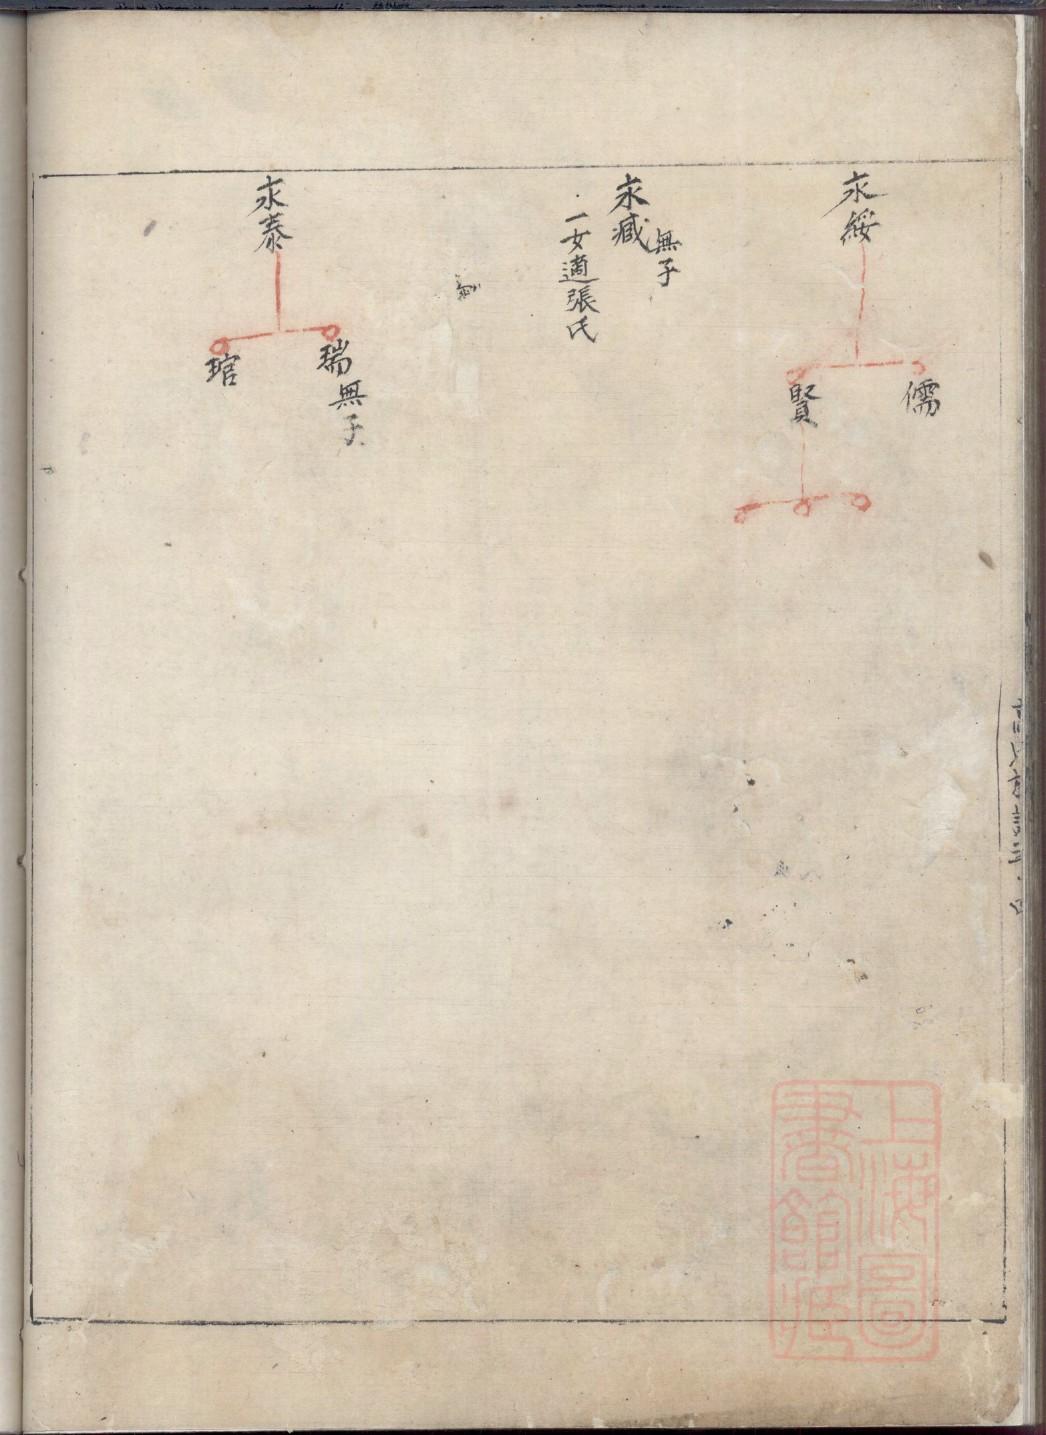 永綏
儒
賢
永臧
無子
一女適張氏
永泰
瑞無子
琯
上海圖
書館藏